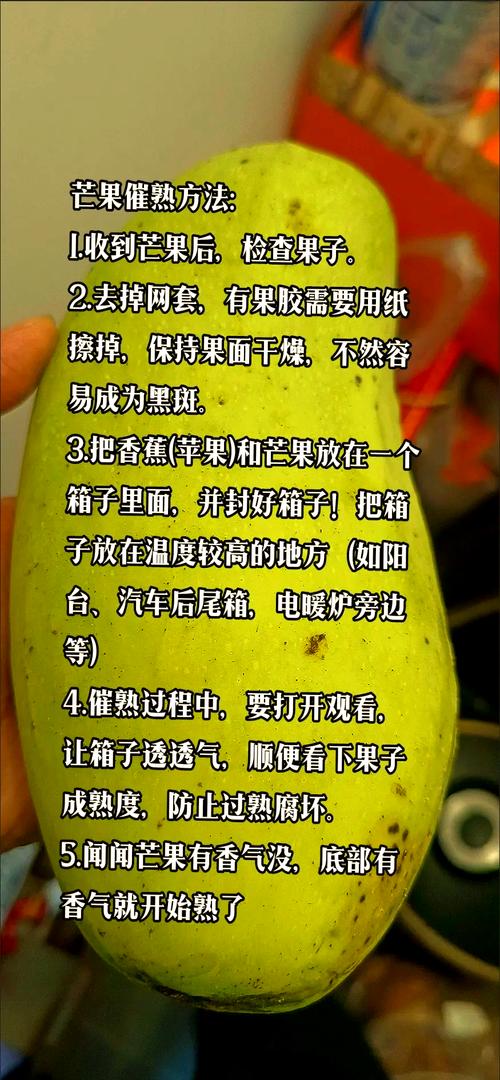 芒果催熟方法:
1.收到芒果后，检查果子。
2.去掉网套，有果胶需要用纸
擦掉，保持果面干燥，不然容
易成为黑斑。
3.把香蕉(苹果)和芒果放在一个
箱子里面，并封好箱子！把箱
子放在温度较高的地方（如阳
台、汽车后尾箱，电暖炉旁边
等)
4.催熟过程中，要打开观看，
让箱子透透气，顺便看下果子
成熟度，防止过熟腐坏。
5.闻闻芒果有香气没，底部有
香气就开始熟了